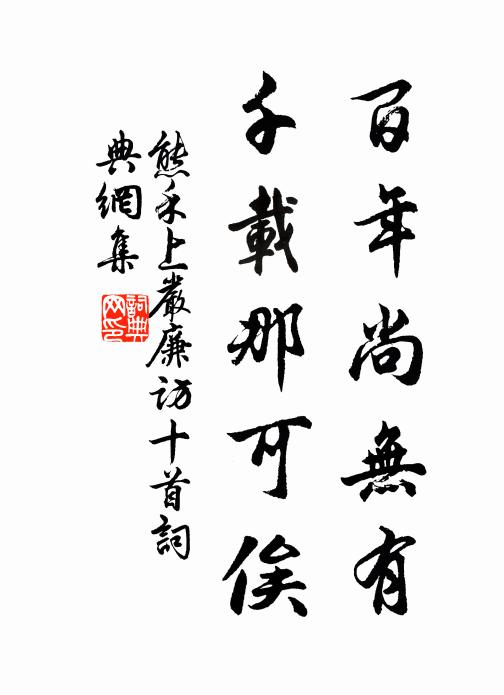 百年尚無有
千載那可俟
熊禾上嚴廉訪十首詞
典網集
詞典网印